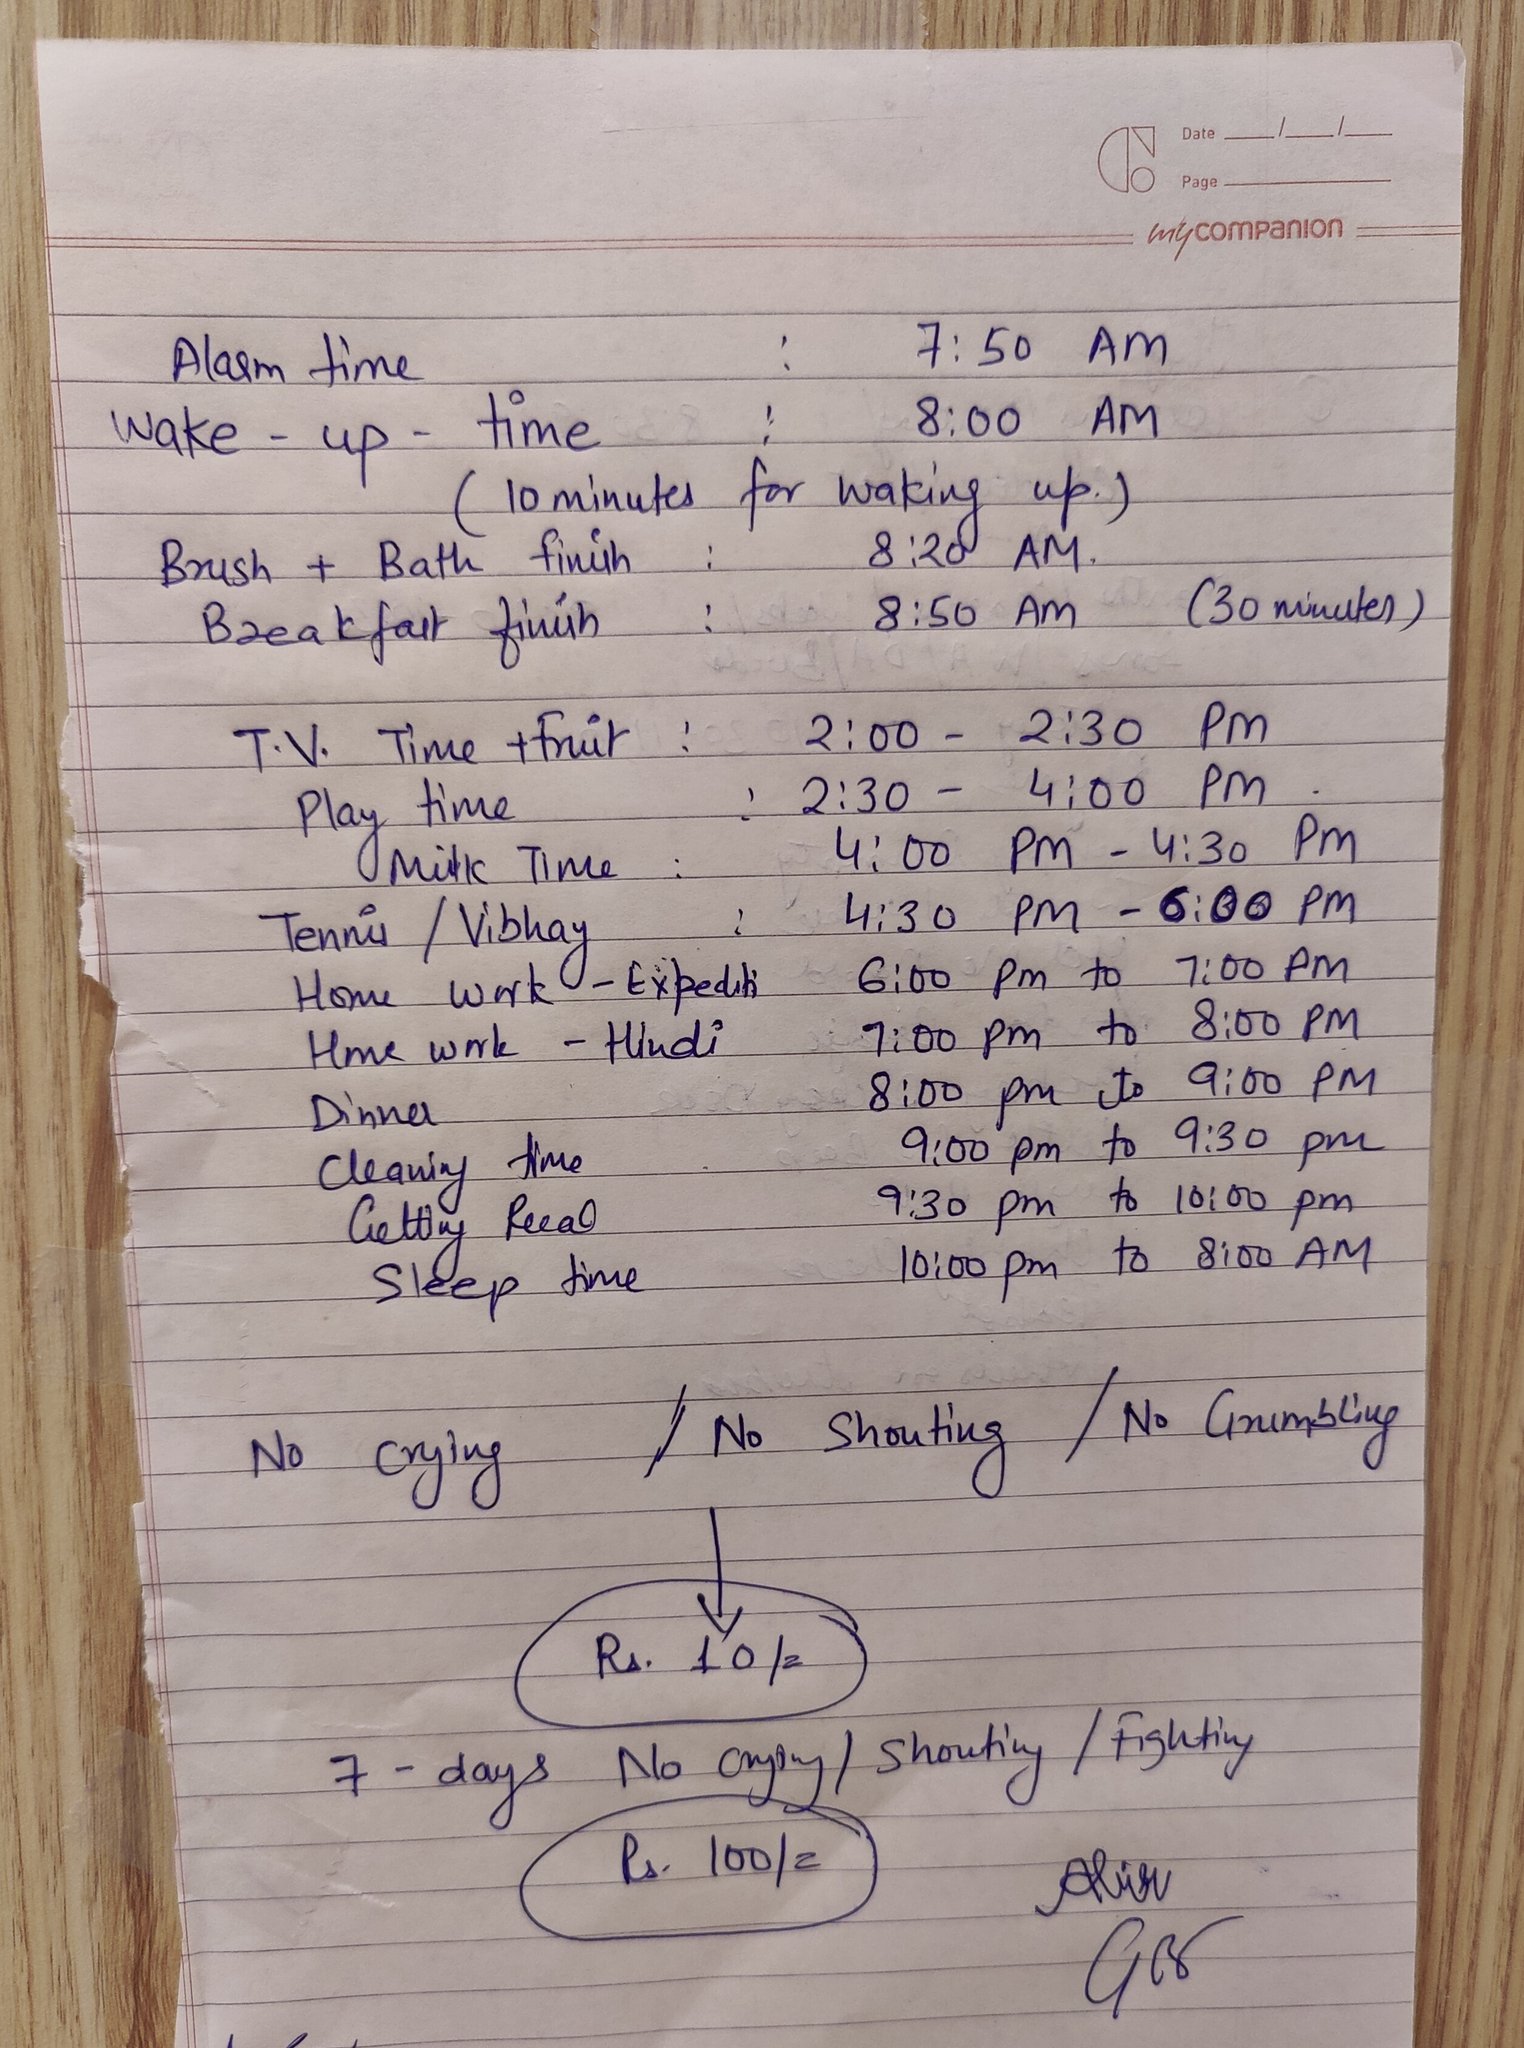 Date __/__/__
Page ____
mycompanion
Alarm time : 7:50 AM
Wake - up - time : 8:00 AM
(10 minutes for waking up.)
Brush + Bath finish : 8:20 AM.
Breakfast finish : 8:50 AM (30 minutes)
T.V. Time + Fruit : 2:00 - 2:30 PM
Play time : 2:30 - 4:00 PM
Milk Time : 4:00 PM - 4:30 PM
Tennis / Vibhay : 4:30 PM - 6:00 PM
Home work - Expediti 6:00 pm to 7:00 PM
Home work - Hindi 7:00 pm to 8:00 PM
Dinner 8:00 pm to 9:00 PM
Cleaning time 9:00 pm to 9:30 pm
Getting 9:30 pm to 10:00 pm
Sleep time 10:00 pm to 8:00 AM
No Crying / No Shouting / No Grumbling
Rs. 10/=
7 - days No Crying / Shouting / Fighting
Rs. 100/=